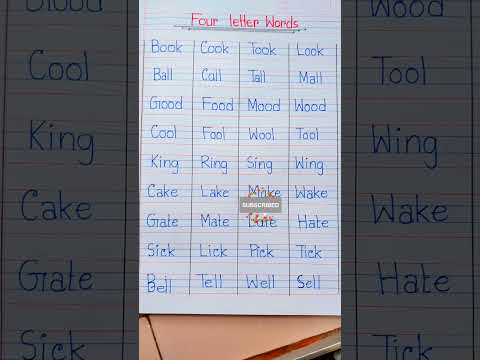 Four letter Words
Book Cook Took Look
Ball Call Tall Mall
Good Food Mood Wood
Cool Fool Wool Tool
King Ring Sing Wing
Cake Lake Make Wake
SUBSCRIBED
Gate Mate Late Hate
Sick Lick Pick Tick
Bell Tell Well Sell
Cool
King
Cake
Gate
Sick
Wood
Tool
Wing
Wake
Hate
Tick